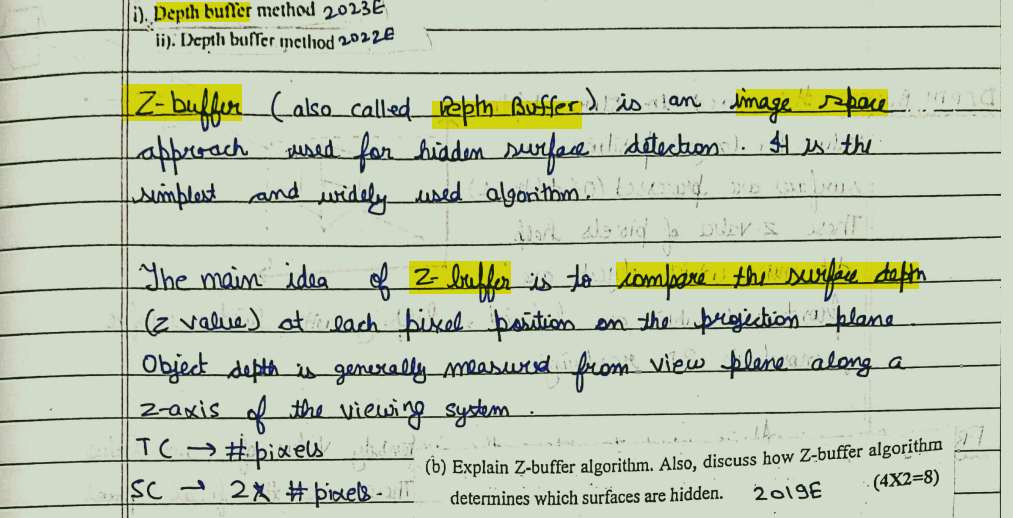 i). Depth buffer method 2023E
ii). Depth buffer method 2022E
Z-buffer (also called Depth Buffer) is an image space
approach used for hidden surface detection. It is the
simplest and widely used algorithm.
The main idea of Z-buffer is to compare the surface depth
(z value) at each pixel position on the projection plane.
Object depth is generally measured from view plane along a
z-axis of the viewing system.
TC → # pixels
(b) Explain Z-buffer algorithm. Also, discuss how Z-buffer algorithm
SC → 2x # pixels
determines which surfaces are hidden. 2019E (4X2=8)